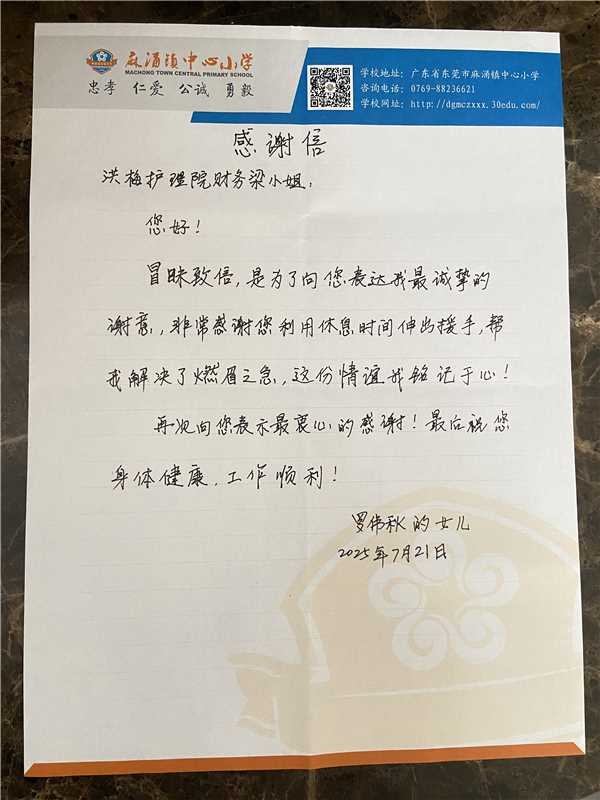 麻涌镇中心小学
MACHONG TOWN CENTRAL PRIMARY SCHOOL
忠孝 仁爱 公诚 勇毅
学校地址：广东省东莞市麻涌镇中心小学
咨询电话：0769-88236621
学校网址：http://dgmczxxx.30edu.com/
感谢信
洪梅护理院财务梁小姐：
您好！
冒昧致信，是为了向您表达我最诚挚的
谢意，非常感谢您利用休息时间伸出援手，帮
我解决了燃眉之急，这份情谊我铭记于心！
再次向您表示最衷心的感谢！最后祝您
身体健康，工作顺利！
罗伟秋的女儿
2025年7月21日